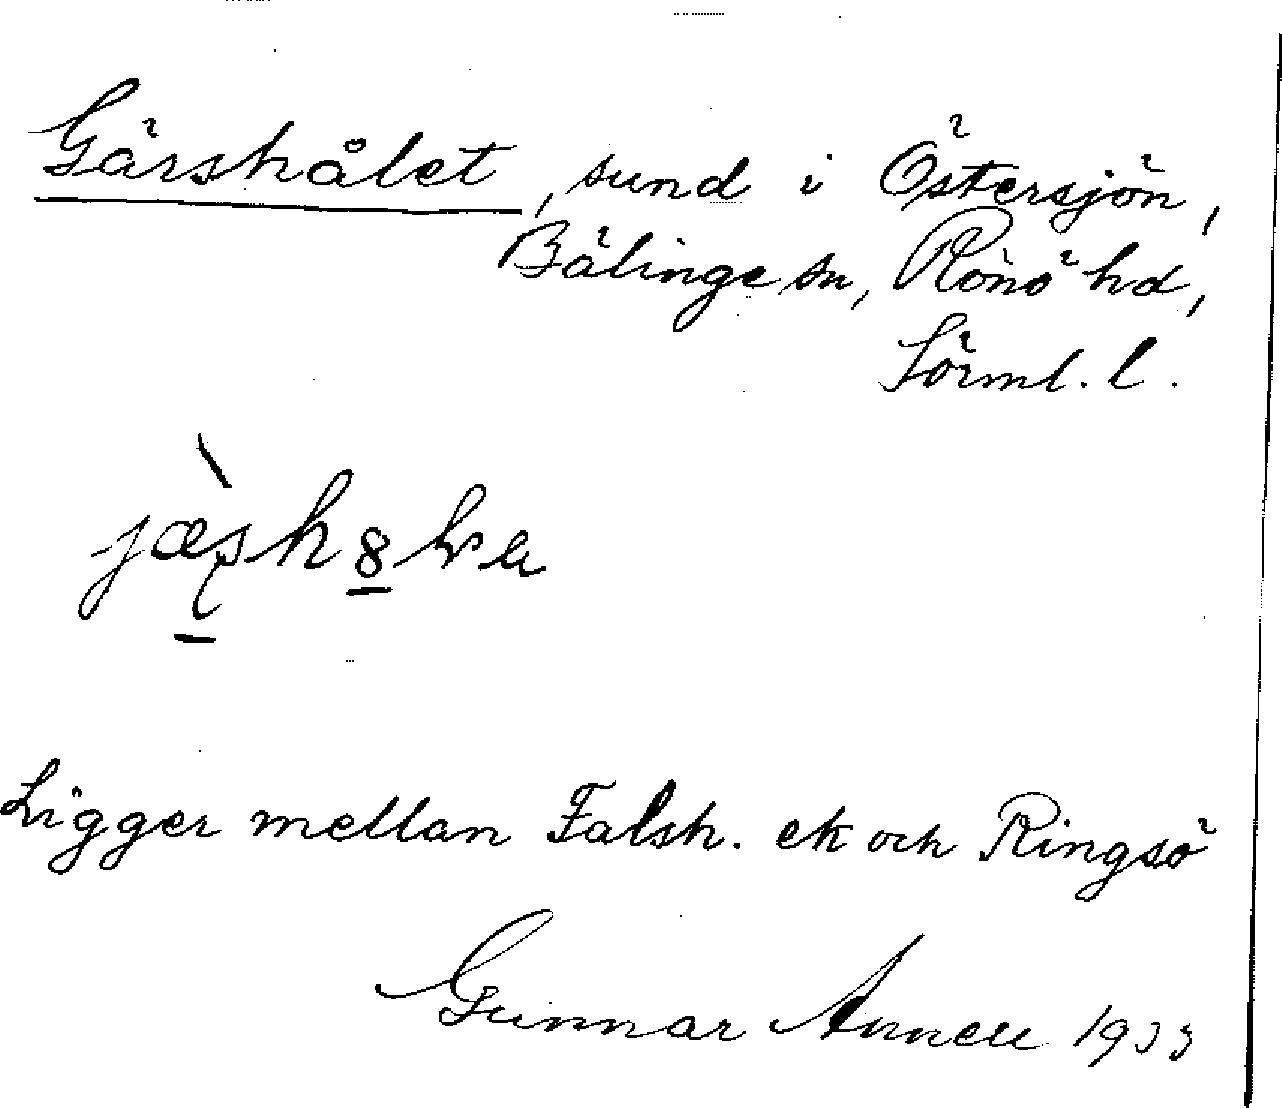 Gärshålet, sund i Östersjön,
Bälinge sn, Rönö hd,
Sörml. l.
Ligger mellan Falsh. ek och Ringsö
Gunnar Annell 1933